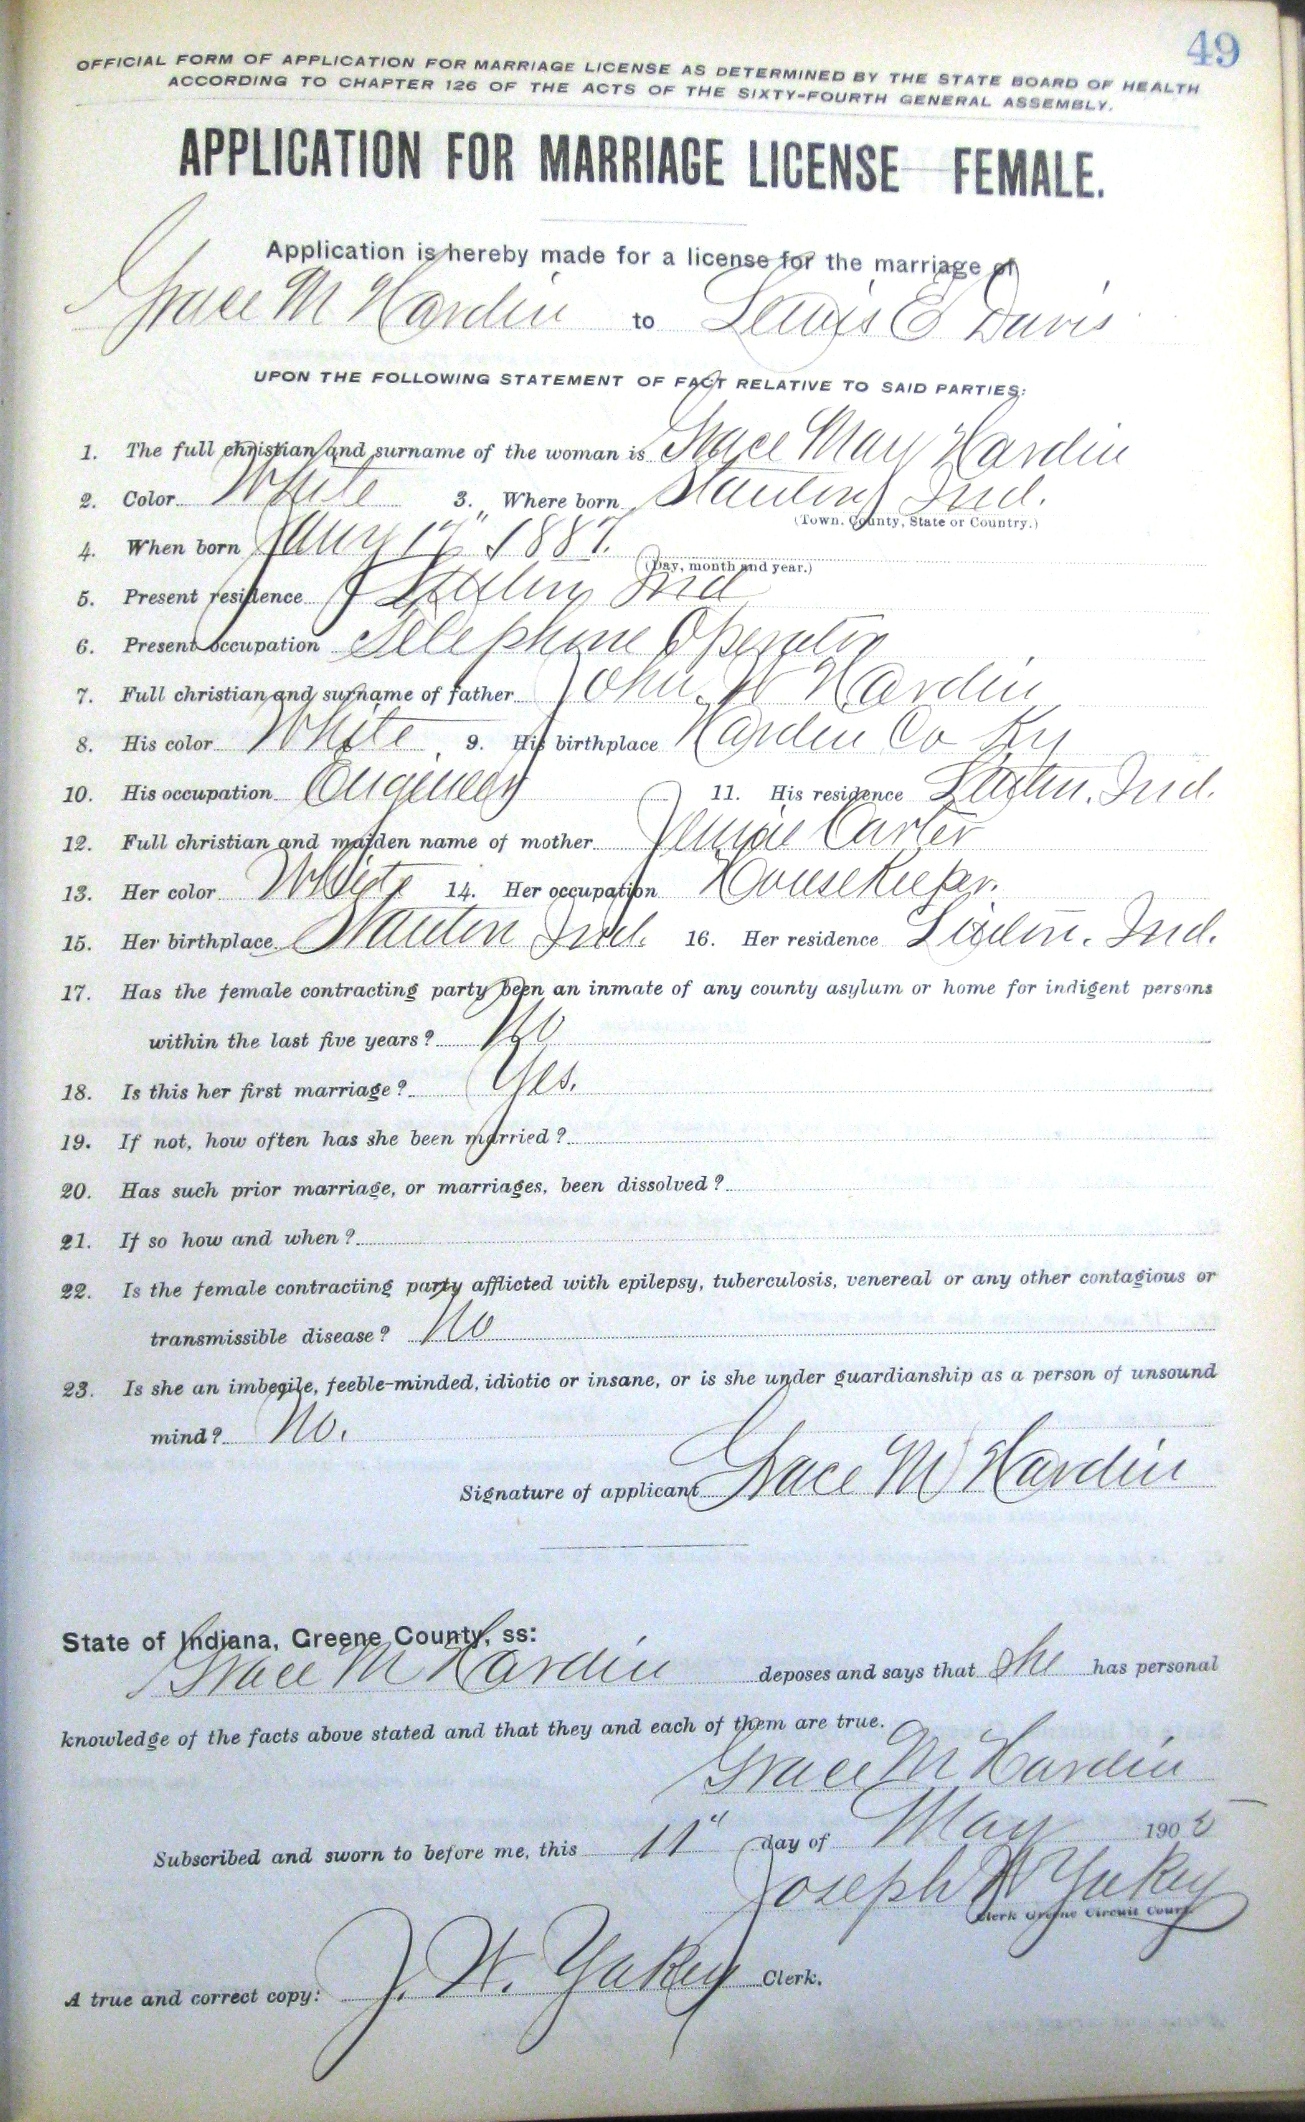 49
OFFICIAL FORM OF APPLICATION FOR MARRIAGE LICENSE AS DETERMINED BY THE STATE BOARD OF HEALTH
ACCORDING TO CHAPTER 126 OF THE ACTS OF THE SIXTY-FOURTH GENERAL ASSEMBLY.
APPLICATION FOR MARRIAGE LICENSE—FEMALE.
Application is hereby made for a license for the marriage of
Grace M Hardin to Lewis E Davis
UPON THE FOLLOWING STATEMENT OF FACT RELATIVE TO SAID PARTIES:
1. The full christian and surname of the woman is Grace May Hardin
2. Color White 3. Where born Staunton Ind.
(Town, County, State or Country.)
4. When born 17" 1887.
(Day, month and year.)
5. Present residence Linton Ind
6. Present occupation Telephone Operator
7. Full christian and surname of father John W Hardin
8. His color White 9. His birthplace Hardin Co Ky
10. His occupation Engineer 11. His residence Linton, Ind.
12. Full christian and maiden name of mother Jennie Carter
13. Her color White 14. Her occupation Housekeeper.
15. Her birthplace Staunton Ind. 16. Her residence Linton. Ind.
17. Has the female contracting party been an inmate of any county asylum or home for indigent persons
within the last five years? No
18. Is this her first marriage? Yes.
19. If not, how often has she been married?
20. Has such prior marriage, or marriages, been dissolved?
21. If so how and when?
22. Is the female contracting party afflicted with epilepsy, tuberculosis, venereal or any other contagious or
transmissible disease? No
23. Is she an imbecile, feeble-minded, idiotic or insane, or is she under guardianship as a person of unsound
mind? No.
Signature of applicant Grace M Hardin
State of Indiana, Greene County, ss:
Grace M Hardin deposes and says that she has personal
knowledge of the facts above stated and that they and each of them are true.
Grace M Hardin
Subscribed and sworn to before me, this 11" day of May 1905
Joseph W Yakey
Clerk Greene Circuit Court.
A true and correct copy: J. W. Yakey Clerk.